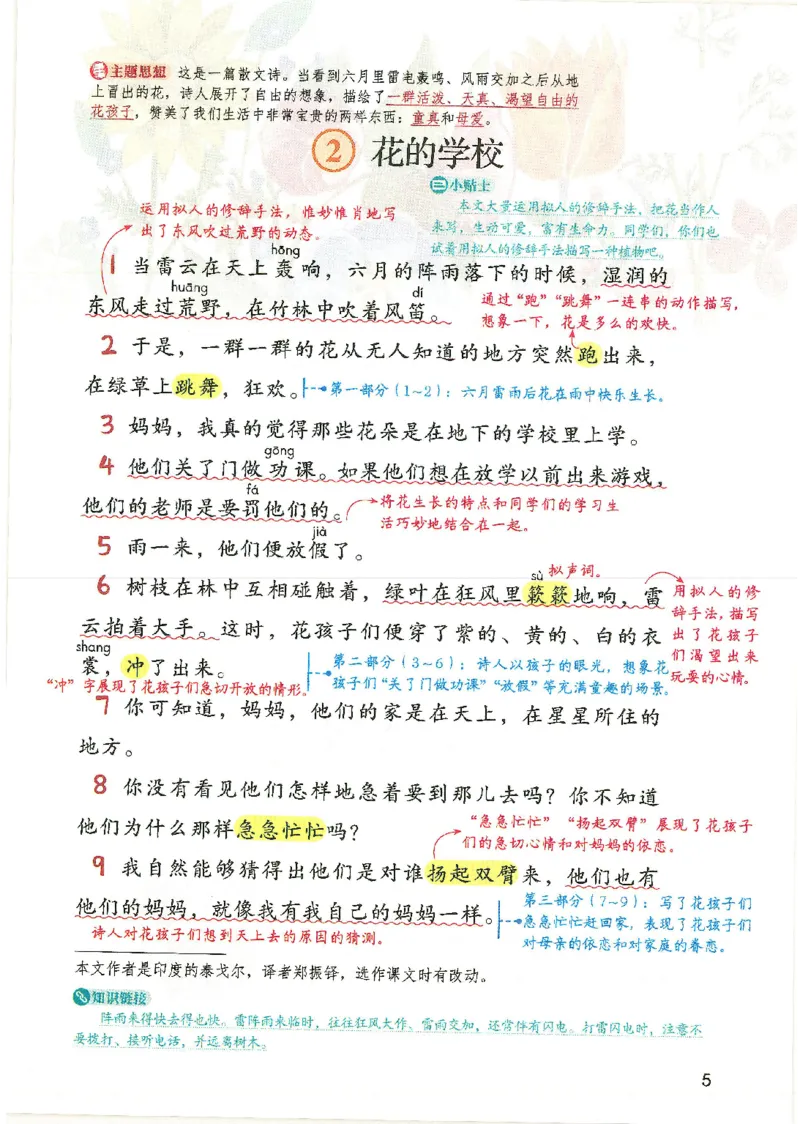 主题思想 这是一篇散文诗。当看到六月里雷电轰鸣、风雨交加之后从地
上冒出的花，诗人展开了自由的想象，描绘了一群活泼、天真、渴望自由的
花孩子，赞美了我们生活中非常宝贵的两样东西：童真和母爱。
2 花的学校
小贴士
本文大量运用拟人的修辞手法，把花当作人
来写，生动可爱，富有生命力。同学们，你们也
试着用拟人的修辞手法描写一种植物吧。
运用拟人的修辞手法，惟妙惟肖地写
出了东风吹过荒野的动态。
hōng
1 当雷云在天上轰响，六月的阵雨落下的时候，湿润的
huāng dí
东风走过荒野，在竹林中吹着风笛。
通过“跑”“跳舞”一连串的动作描写，
想象一下，花是多么的欢快。
2 于是，一群一群的花从无人知道的地方突然跑出来，
在绿草上跳舞，狂欢。
第一部分（1~2）：六月雷雨后花在雨中快乐生长。
3 妈妈，我真的觉得那些花朵是在地下的学校里上学。
gōng
4 他们关了门做功课。如果他们想在放学以前出来游戏，
fá
他们的老师是要罚他们的。
将花生长的特点和同学们的学习生
活巧妙地结合在一起。
jià
5 雨一来，他们便放假了。
sù 拟声词。
6 树枝在林中互相碰触着，绿叶在狂风里簌簌地响，雷
云拍着大手。这时，花孩子们便穿了紫的、黄的、白的衣
shang
裳，冲了出来。
用拟人的修
辞手法，描写
出了花孩子
们渴望出来
玩耍的心情。
第二部分（3~6）：诗人以孩子的眼光，想象花
孩子们“关了门做功课”“放假”等充满童趣的场景。
“冲”字展现了花孩子们急切开放的情形。
7 你可知道，妈妈，他们的家是在天上，在星星所住的
地方。
8 你没有看见他们怎样地急着要到那儿去吗？你不知道
他们为什么那样急急忙忙吗？
“急急忙忙”“扬起双臂”展现了花孩子
们的急切心情和对妈妈的依恋。
9 我自然能够猜得出他们是对谁扬起双臂来，他们也有
他们的妈妈，就像我有我自己的妈妈一样。
第三部分（7~9）：写了花孩子们
急急忙忙赶回家，表现了花孩子们
对母亲的依恋和对家庭的眷恋。
诗人对花孩子们想到天上去的原因的猜测。
本文作者是印度的泰戈尔，译者郑振铎，选作课文时有改动。
知识链接
阵雨来得快去得也快。雷阵雨来临时，往往狂风大作、雷雨交加，还常伴有闪电。打雷闪电时，注意不
要拨打、接听电话，并远离树木。
5